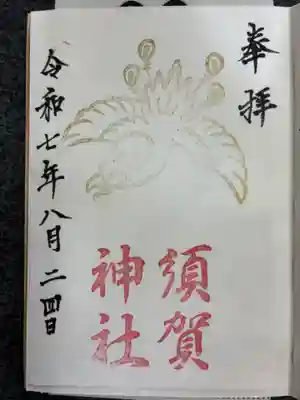 奉拝
須賀
神社
令和七年八月二四日